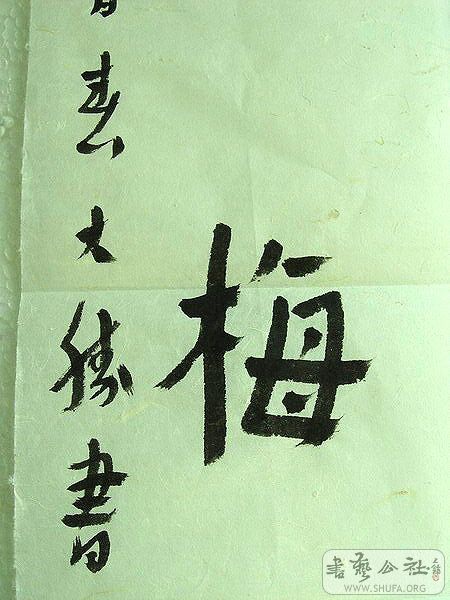 梅
春大勝書
書藝公社
WWW.SHUFA.ORG